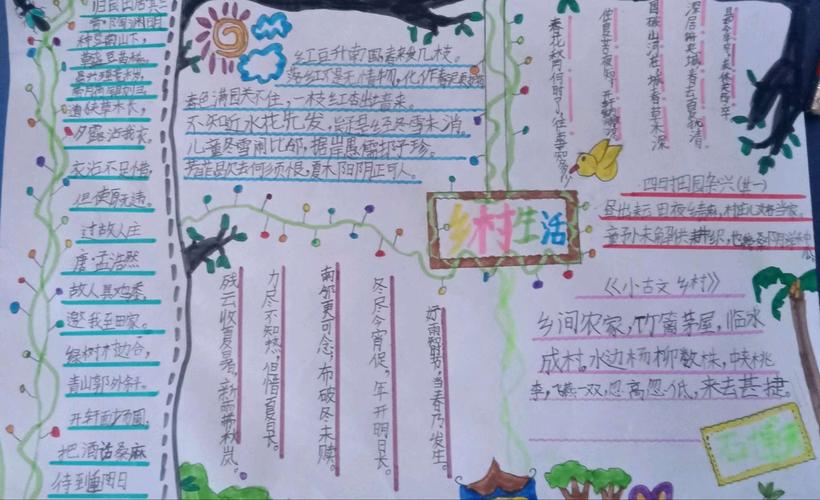 归园田居其三
晋·陶渊明
种豆南山下，
草盛豆苗稀。
晨兴理荒秽，
带月荷锄归。
道狭草木长，
夕露沾我衣。
衣沾不足惜，
但使愿无违。
过故人庄
唐·孟浩然
故人具鸡黍，
邀我至田家。
绿树村边合，
青山郭外斜。
开轩面场圃，
把酒话桑麻
待到重阳日
红豆升南国，春来发几枝。
落红不是无情物，化作春泥更护
春色满园关不住，一枝红杏出墙来。
不知近水花先发，疑是经冬雪未消。
芳菲歇去何须恨，夏木阴阴正可人。
春花秋月何时了，往事知多少
国破山河在，城春草木深
乡村生活
四时田园杂兴(其一)
昼出耘田夜绩麻，村庄儿女各当家。
童孙未解供耕织，也
《小古文 乡村》
乡间农家，竹篱茅屋，临水
成村。水边杨柳数株，中夹桃
李，飞燕一双，忽高忽低，来去甚捷。
残云收夏暑，新雨带秋岚。
力尽不知热，但惜夏日长。
南邻更可念，布破冬未赎。
冬尽今宵促，年开明日长。
好雨知时节，当春乃发生。